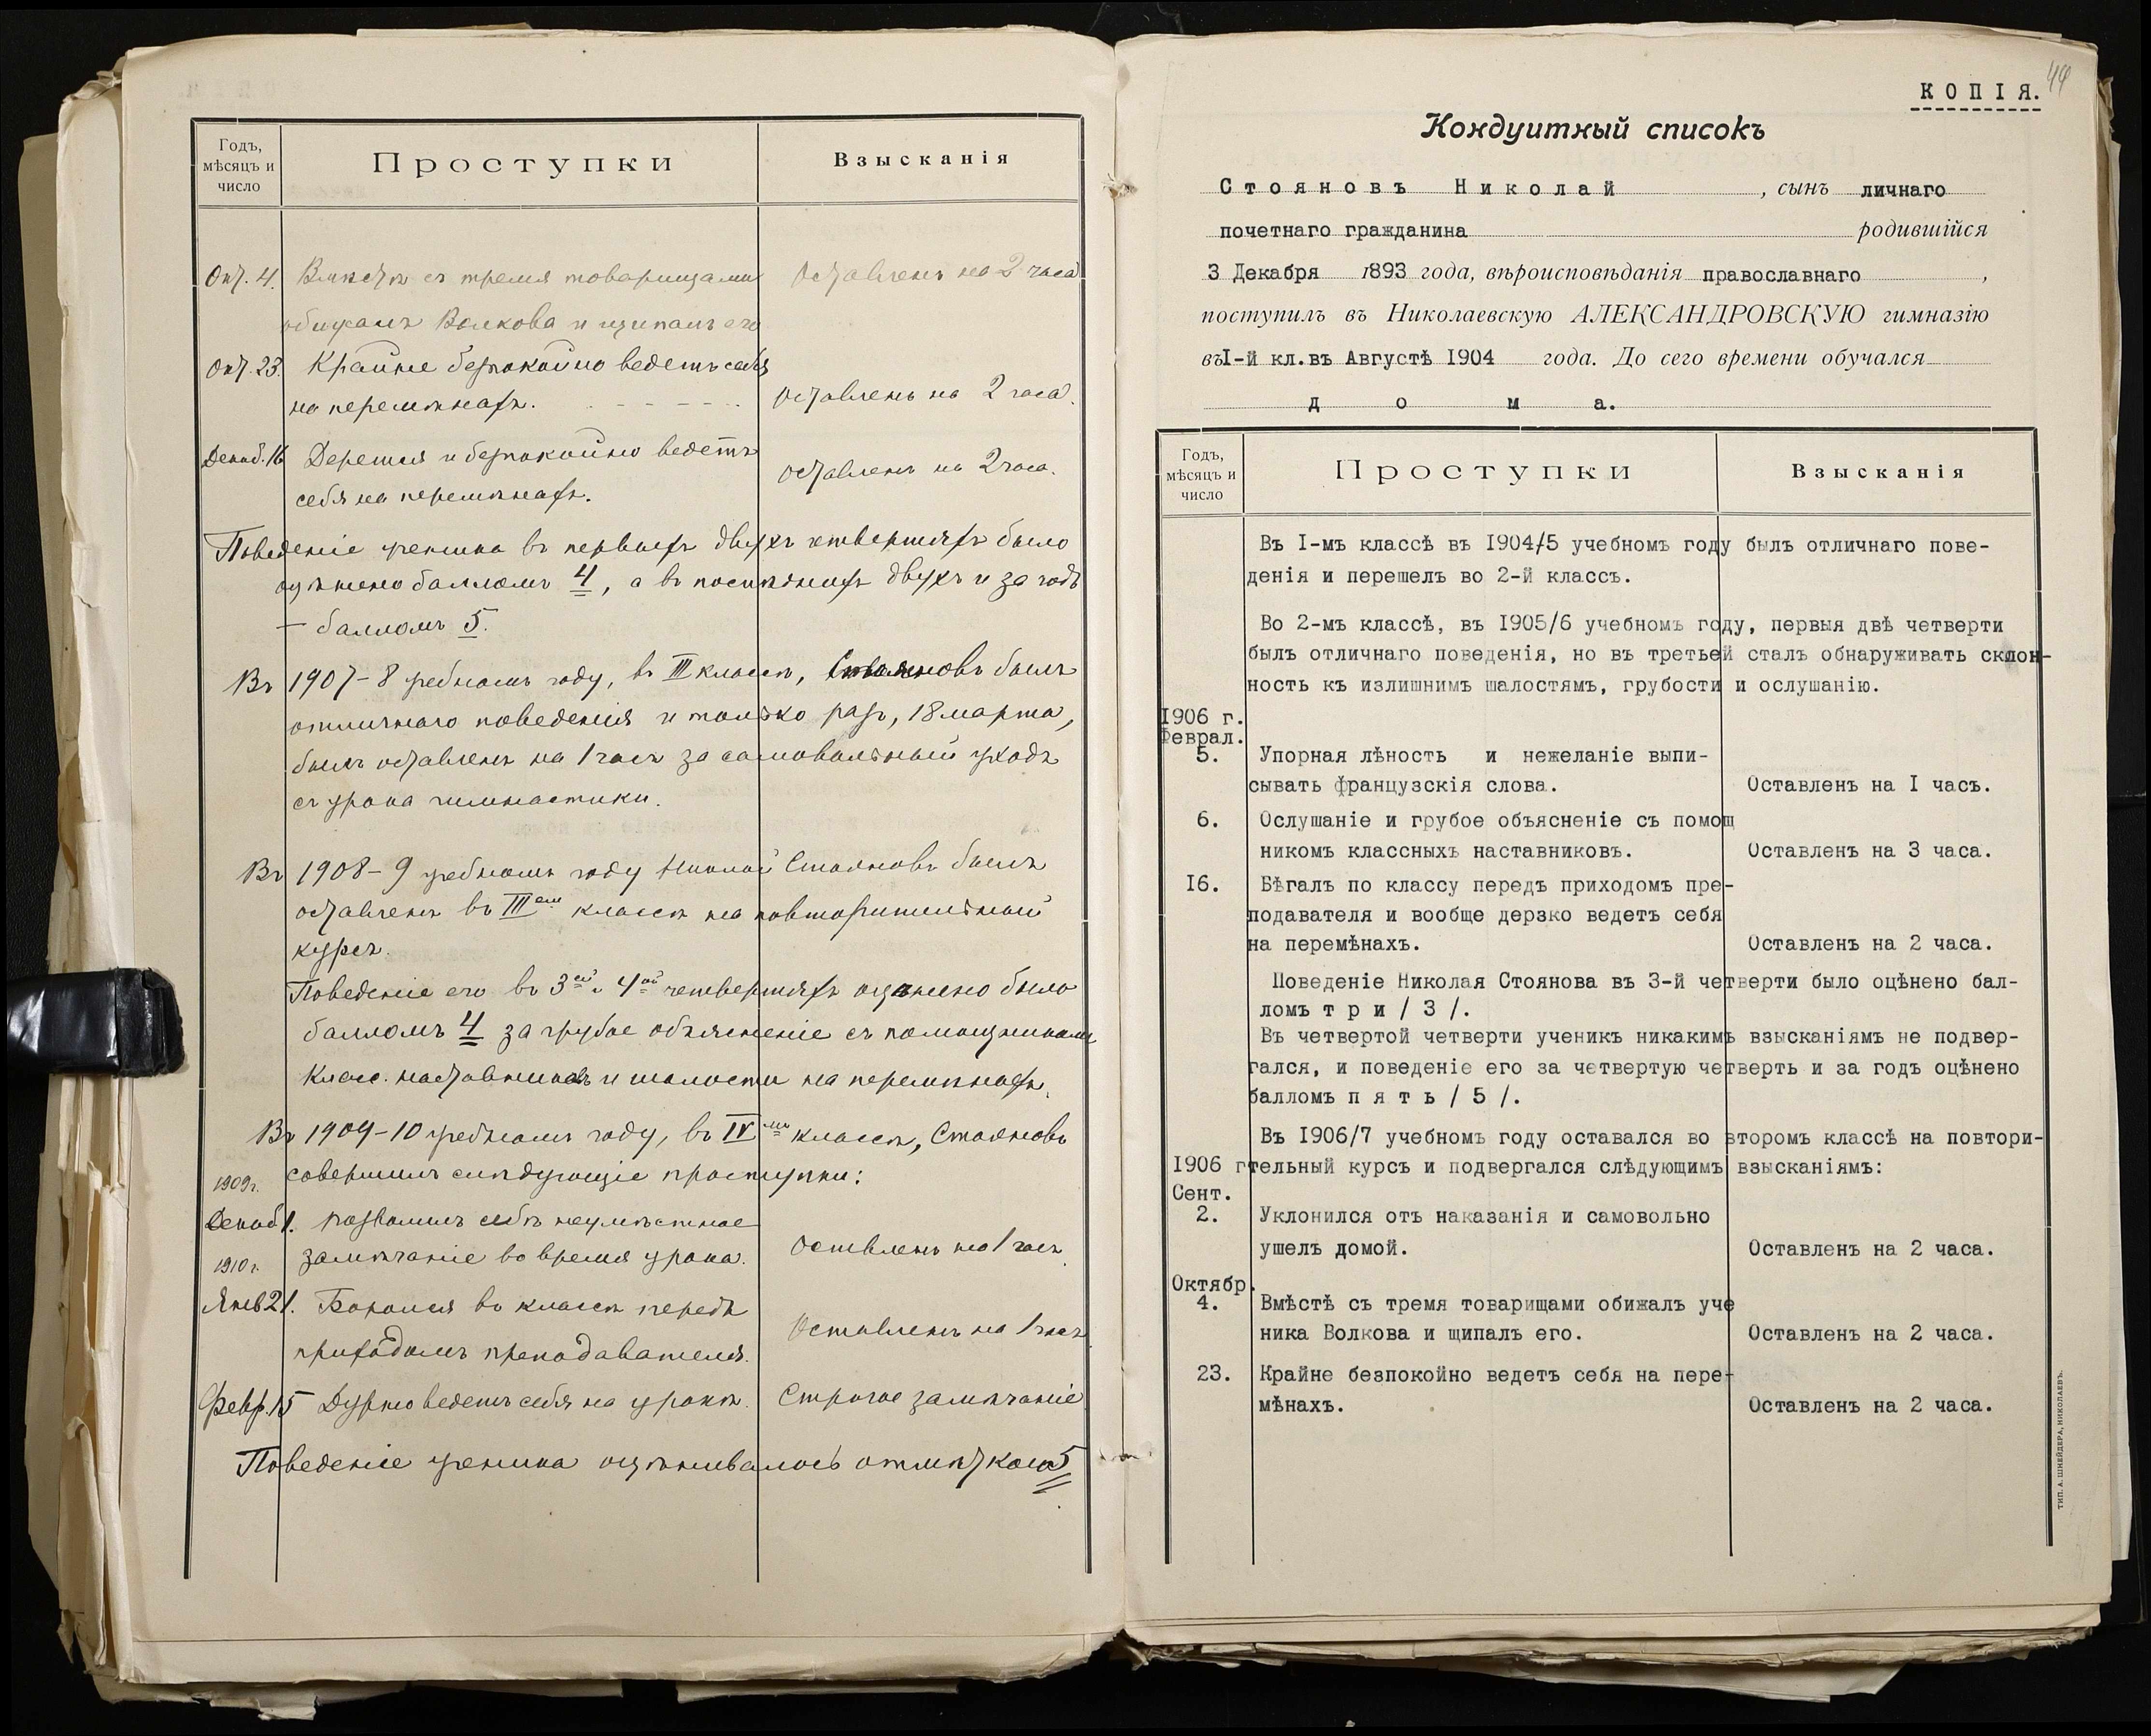 Годъ,
мѣсяцъ и
число
Проступки
Взысканія
Окт. 4.
Вмѣстѣ съ тремя товарищами
Оставленъ на 2 часа
обижалъ Волкова и щипалъ его
Окт. 23.
Крайне безпокойно ведетъ себя
на перемѣнахъ.
Оставленъ на 2 часа.
Декаб. 16
Дерется и безпокойно ведетъ
себя на перемѣнахъ.
Оставленъ на 2 часа.
Поведеніе ученика въ первыхъ двухъ четвертяхъ было
оцѣнено балломъ 4, а въ послѣднихъ двухъ и за годъ
– балломъ 5.
Въ 1907-8 учебномъ году, въ III классѣ, Стояновъ былъ
отличнаго поведенія и только разъ, 18 марта,
былъ оставленъ на 1 часъ за самовольный уходъ
съ урока гимнастики.
Въ 1908-9 учебномъ году Николай Стояновъ былъ
оставленъ въ III емъ классѣ на повторительный
курсъ.
Поведеніе его въ 3 ей и 4 ой четвертяхъ оцѣнено было
балломъ 4 за грубое объясненіе съ помощникомъ
класс. наставниковъ и шалости на перемѣнахъ.
Въ 1909-10 учебномъ году, въ IV мъ классѣ, Стояновъ
совершилъ слѣдующіе проступки:
1909 г.
Декаб 1.
позволилъ себѣ неумѣстное
замѣчаніе во время урока.
Оставленъ на 1 часъ.
1910 г.
Янв 21.
Боролся въ классѣ передъ
приходомъ преподавателя.
Оставленъ на 1 часъ
Февр. 15
Дурно ведетъ себя на урокѣ.
Строгое замѣчаніе
Поведеніе ученика оцѣнивалось отмѣткою 5
44
КОПІЯ.
Кондуитный списокъ
Стояновъ Николай , сынъ личнаго
почетнаго гражданина родившійся
3 Декабря 1893 года, вѣроисповѣданія православнаго ,
поступилъ въ Николаевскую АЛЕКСАНДРОВСКУЮ гимназію
въ I-й кл. въ Августѣ 1904 года. До сего времени обучался
дома.
Годъ,
мѣсяцъ и
число
Проступки
Взысканія
Въ I-мъ классѣ въ 1904/5 учебномъ году былъ отличнаго пове-
денія и перешелъ во 2-й классъ.
Во 2-мъ классѣ, въ 1905/6 учебномъ году, первыя двѣ четверти
былъ отличнаго поведенія, но въ третьей сталъ обнаруживать склон-
ность къ излишнимъ шалостямъ, грубости и ослушанію.
1906 г.
Феврал.
5.
Упорная лѣность и нежеланіе выпи-
сывать французскія слова.
Оставленъ на I часъ.
6.
Ослушаніе и грубое объясненіе съ помощ
никомъ классныхъ наставниковъ.
Оставленъ на 3 часа.
16.
Бѣгалъ по классу передъ приходомъ пре-
подавателя и вообще дерзко ведетъ себя
на перемѣнахъ.
Оставленъ на 2 часа.
Поведеніе Николая Стоянова въ 3-й четверти было оцѣнено бал-
ломъ т р и / 3 /.
Въ четвертой четверти ученикъ никакимъ взысканіямъ не подвер-
гался, и поведеніе его за четвертую четверть и за годъ оцѣнено
балломъ п я т ь / 5 /.
Въ 1906/7 учебномъ году оставался во второмъ классѣ на повтори-
1906 г
тельный курсъ и подвергался слѣдующимъ взысканіямъ:
Сент.
2.
Уклонился отъ наказанія и самовольно
ушелъ домой.
Оставленъ на 2 часа.
Октябр.
4.
Вмѣстѣ съ тремя товарищами обижалъ уче
ника Волкова и щипалъ его.
Оставленъ на 2 часа.
23.
Крайне безпокойно ведетъ себя на пере-
мѣнахъ.
Оставленъ на 2 часа.
ТИП. А. ШНЕЙДЕРА, НИКОЛАЕВЪ.